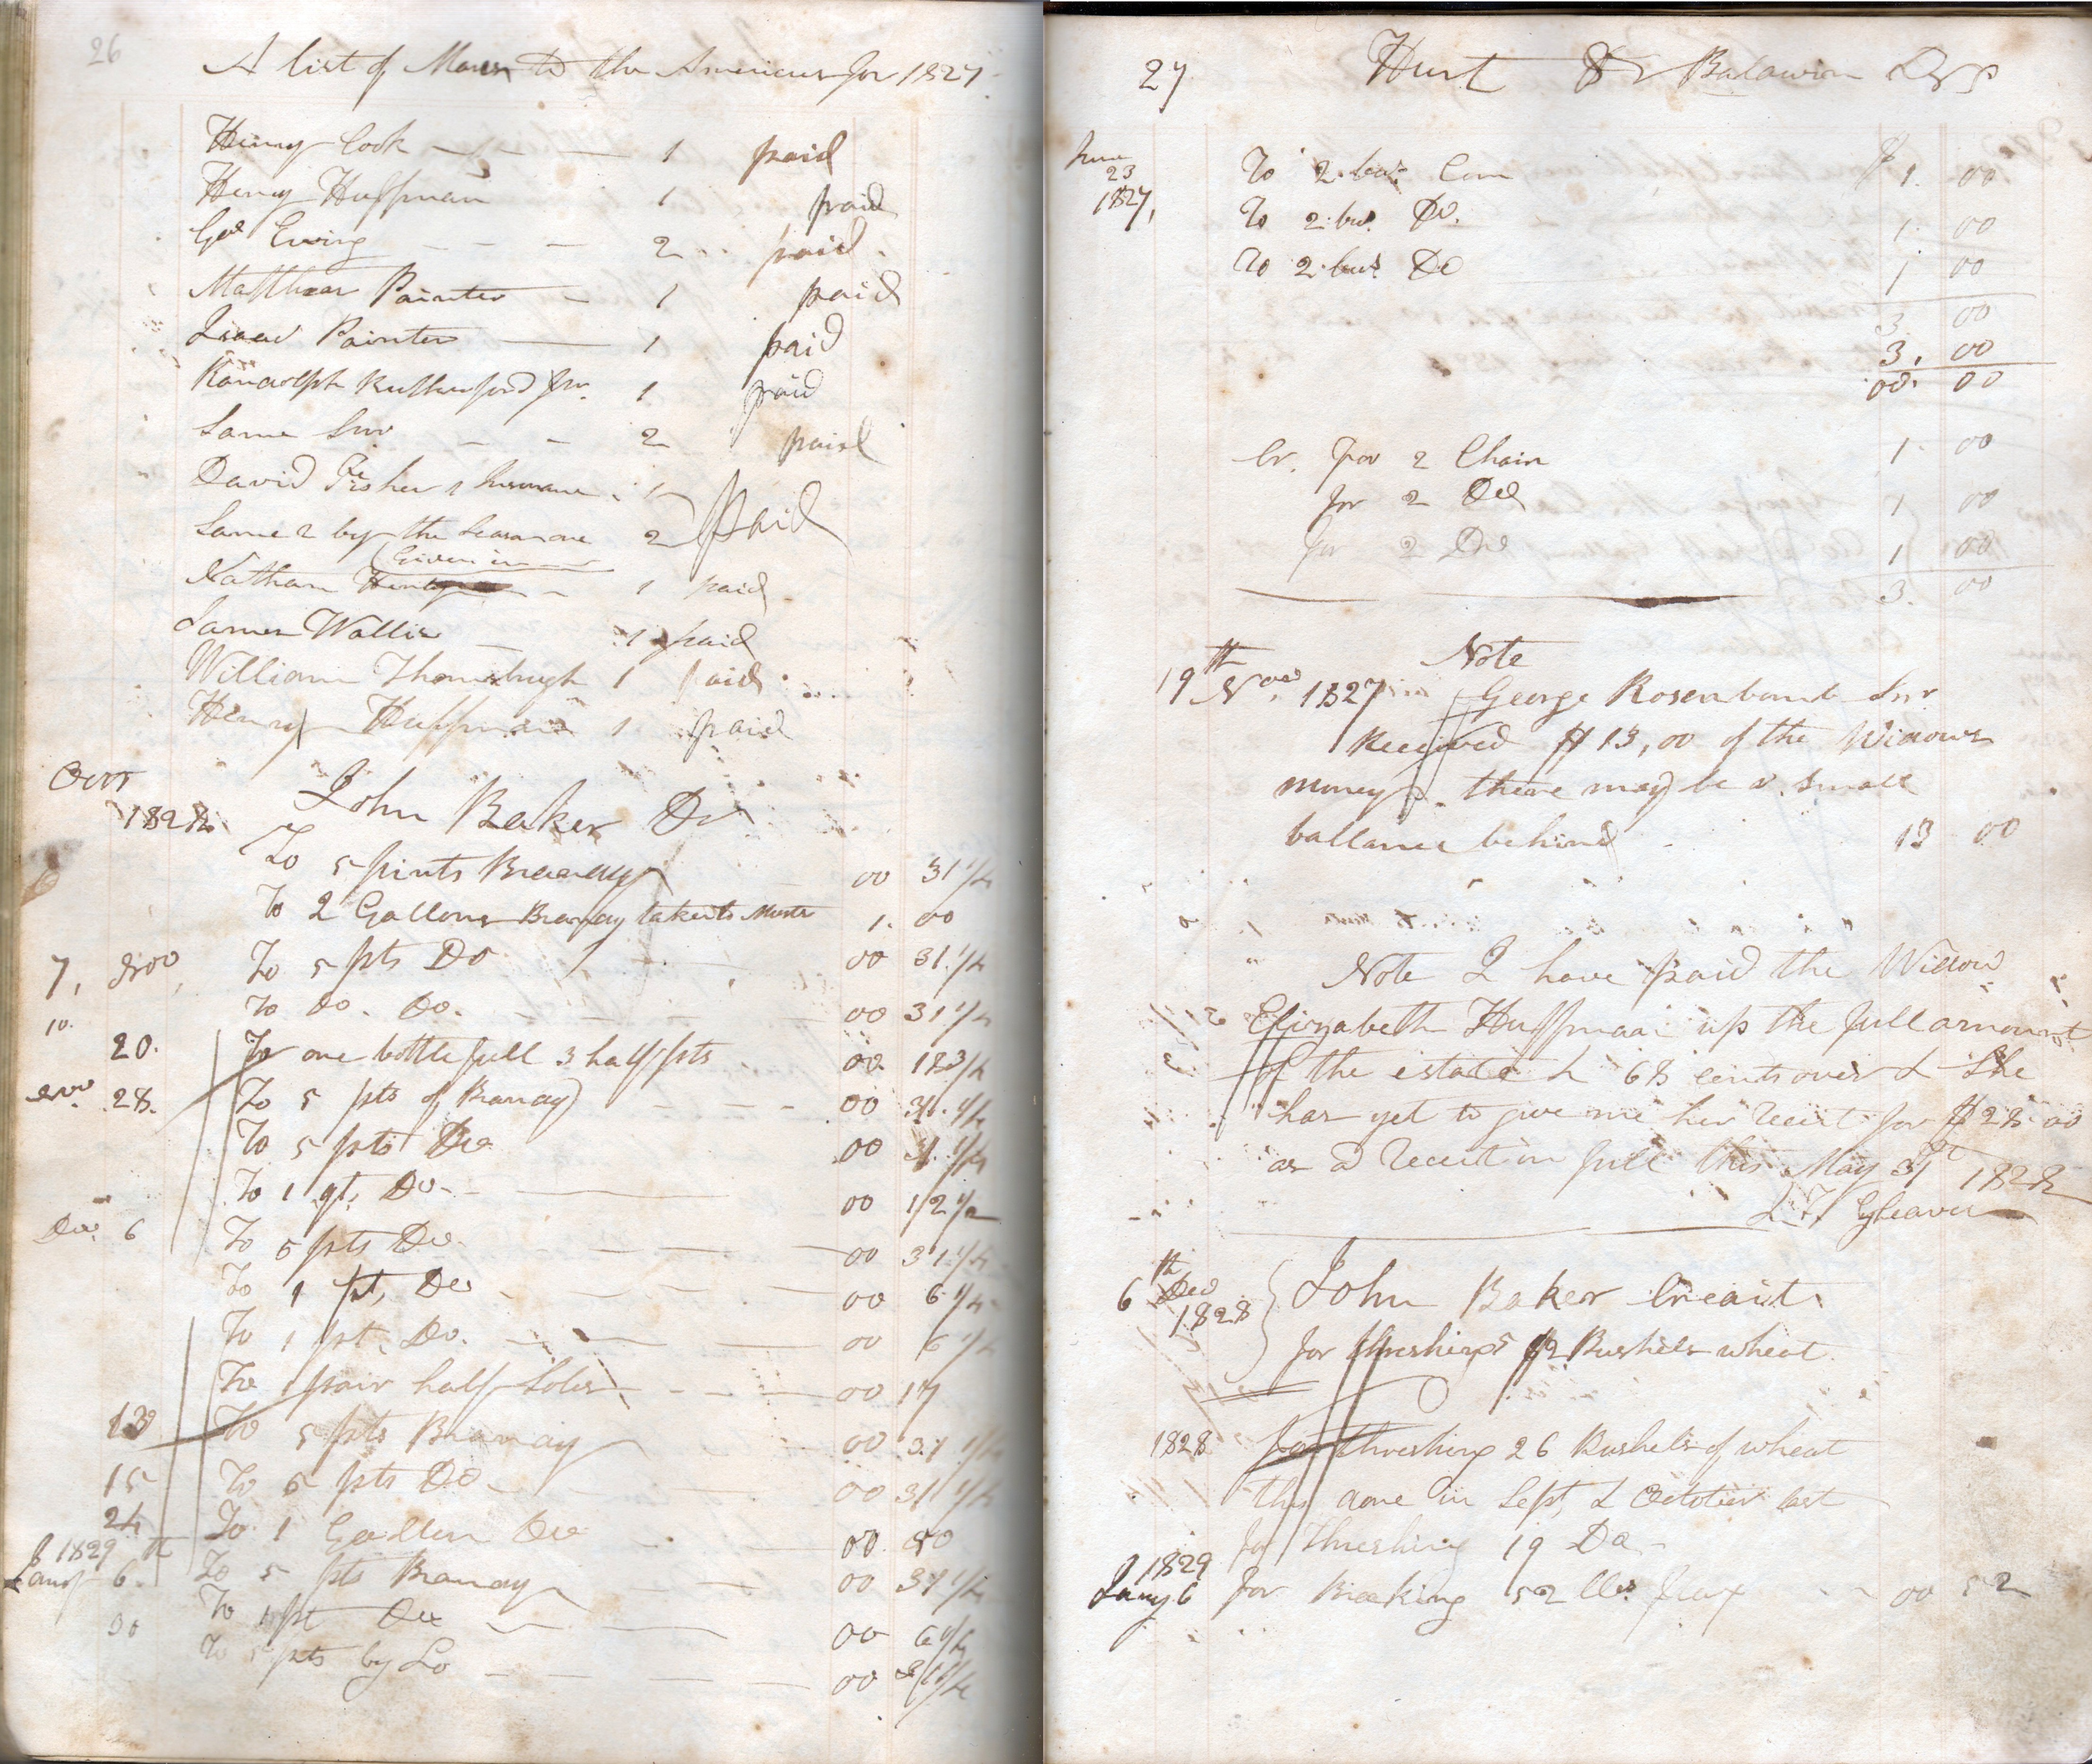 26
A list of Mares to the Americus for 1827.
Henry Cook 1 paid
Henry Huffman 1 paid
Geo Ewing 2 paid
Matthew Painter 1 paid
Isaac Painter 1 paid
Randolph Rutherford Jnr. 1 paid
Same Snr 2 paid
David Fisher 1 1
Same 2 by the Season one 2 Paid
Given in
Nathan 1 paid
James Wallis 1 paid
William Thornburgh 1 paid
Henry Huffman 1 paid
1828
John Baker Dr
To 5 pints Brandy 00 31 1/4
To 2 Gallons Brandy taken to 1. 00
7, Nov To 5 pts Do 00 31 1/4
10. To Do. Do. 00 31 1/4
20. To one bottle full 3 half pts 00 18 3/4
Nov 28. To 5 pts of Brandy 00 31 1/4
To 5 pts Do 00 31 1/4
To 1 qt. Do. 00 12 1/2
Dec 6 To 5 pts Do 00 31 1/4
To 1 pt, Do 00 6 1/4
To 1 pt. Do. 00 6 1/4
To 1 pair half Soles 00 17
13 To 5 pts Brandy 00 31 1/4
15 To 5 pts Do 00 31 1/4
24 To 1 Gallon Do 00. 50
1829
Jany 6th To 5 pts Brandy 00 31 1/4
30 To 1 pt Do 00 6 1/4
To 5 pts by Do 00 31 1/4
27 Hurt & Baldwin Drs
June
23
1827,
To 2 bus. Corn $ 1. 00
To 2 bus. Do. 1. 00
To 2 bus. Do 1 00
3. 00
3. 00
00. 00
Cr. for 2 Chain 1. 00
for 2 Do 1 00
for 2 Do 1 00
3. 00
Note
19th Nov. 1827 George Rosenbaumb Snr
Received $13,00 of the Widows
money. there may be a small
ballance behind 13 00
Note I have paid the Widow
Elizabeth Huffman up the full amount
of the estate & 68 cents over & She
has yet to give me her receit for $28.00
as a receit in full this May 31st 1828
L. T. Cleaver
6th Dec
1828
John Baker Credit
for threshing 52 Bushels wheat
1828 for threshing 26 Bushels of wheat
this done in Sept, & October last
for threshing 19 Do
1829
Jany 6 for Breaking 52 lbs. flax 00 52